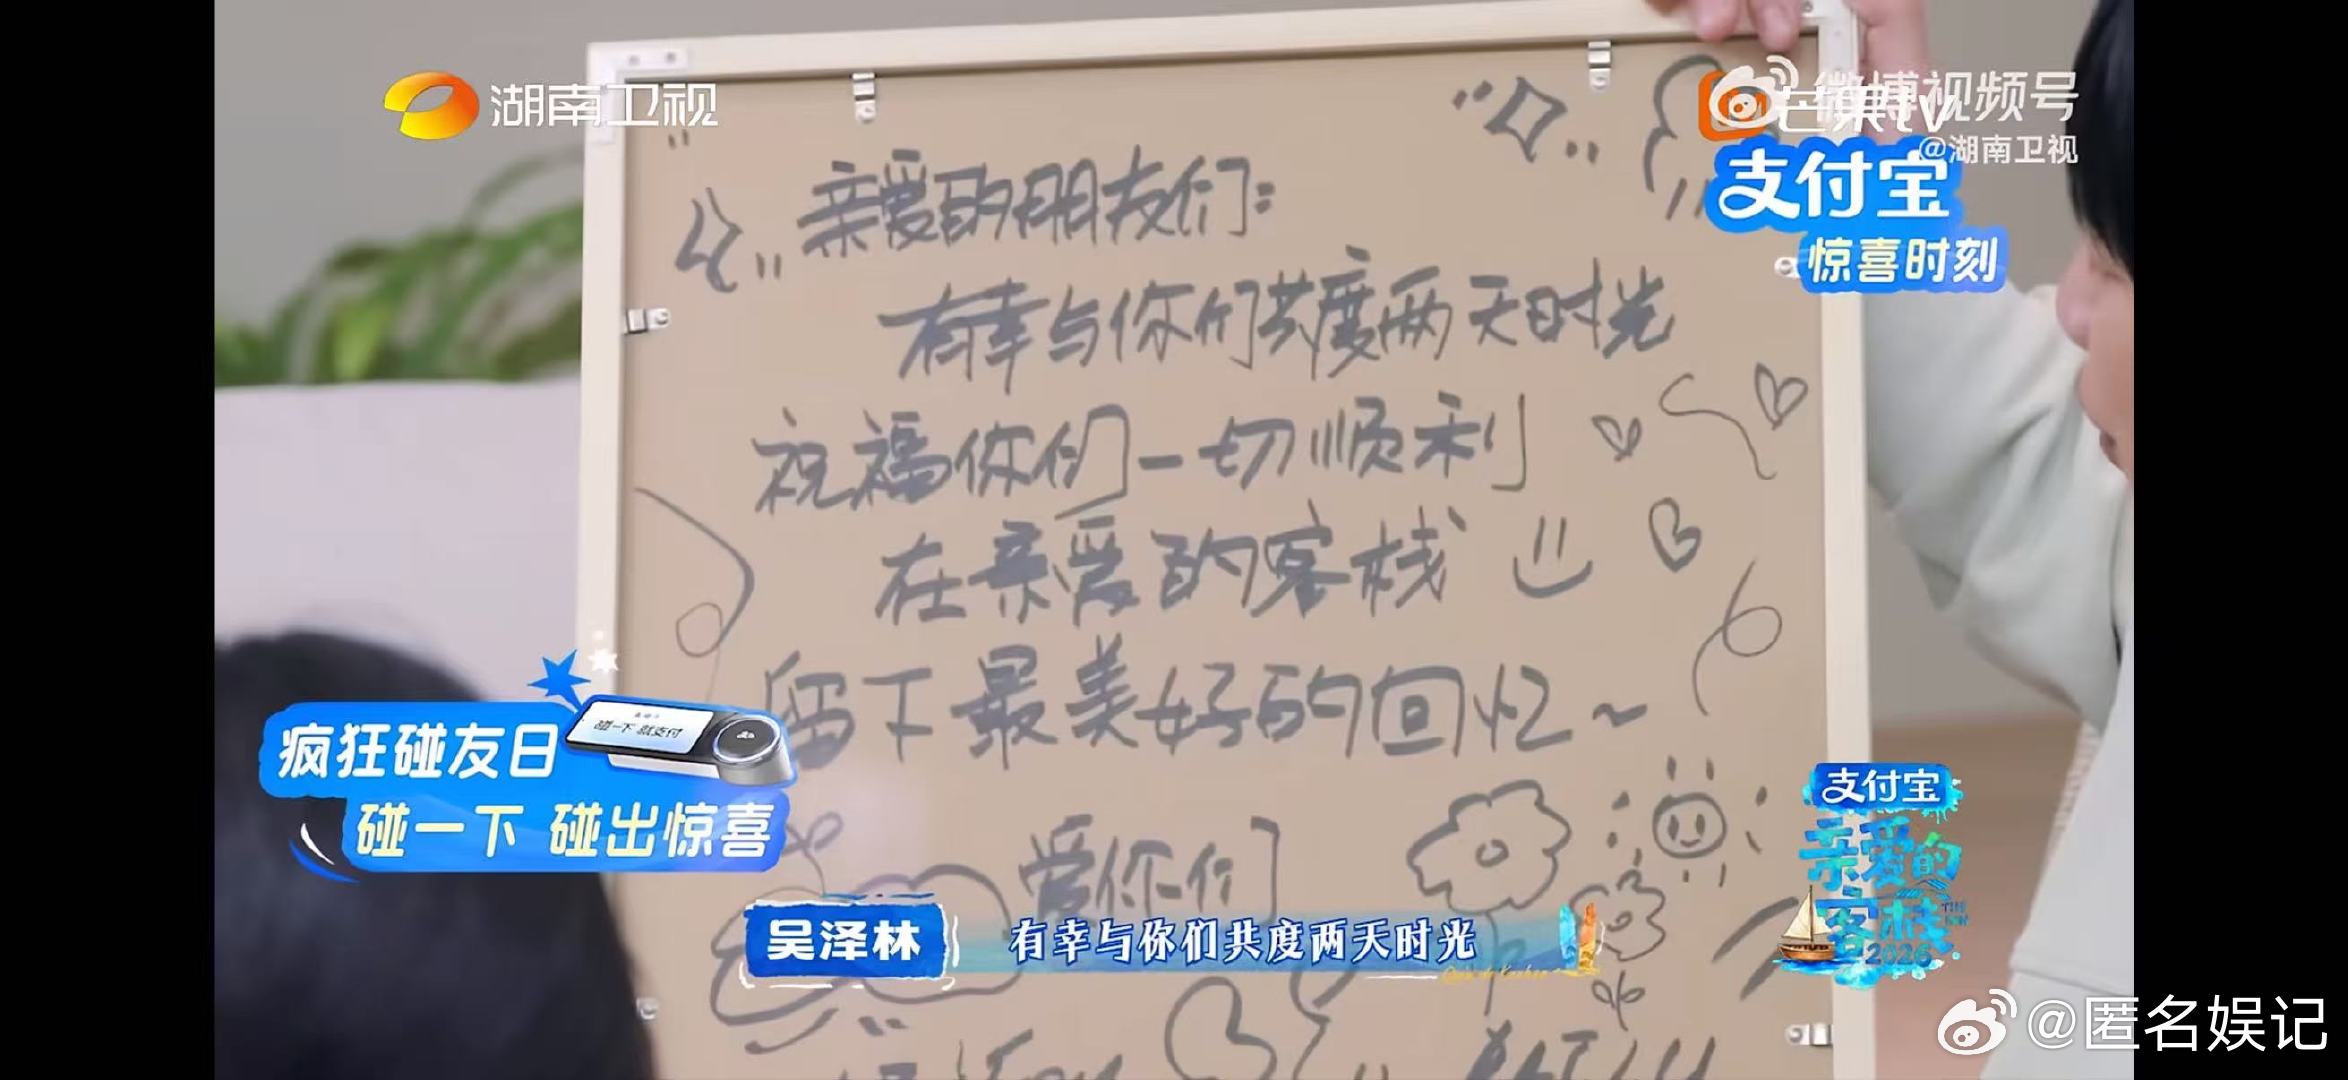 湖南卫视
微博视频号
芒果tv
@湖南卫视
支付宝
惊喜时刻
亲爱的朋友们：
有幸与你们共度两天时光
祝福你们一切顺利
在亲爱的客栈
留下最美好的回忆~
爱你们
疯狂碰友日
碰一下 就支付
碰一下 碰出惊喜
吴泽林
有幸与你们共度两天时光
支付宝
亲爱的
客栈
2026
@匿名娱记